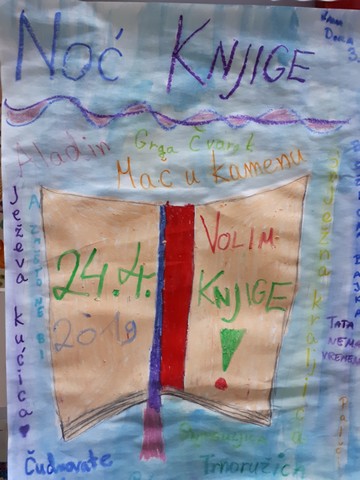 NOĆ KNJIGE
Aladin
Grga Čvarak
Mač u kamenu
Ježeva kućica
Snježna kraljica
VOLIM
KNJIGE
!
24.4.
2019
TATA
NEMA
VREMENA
Trnoružica
Čudnovate